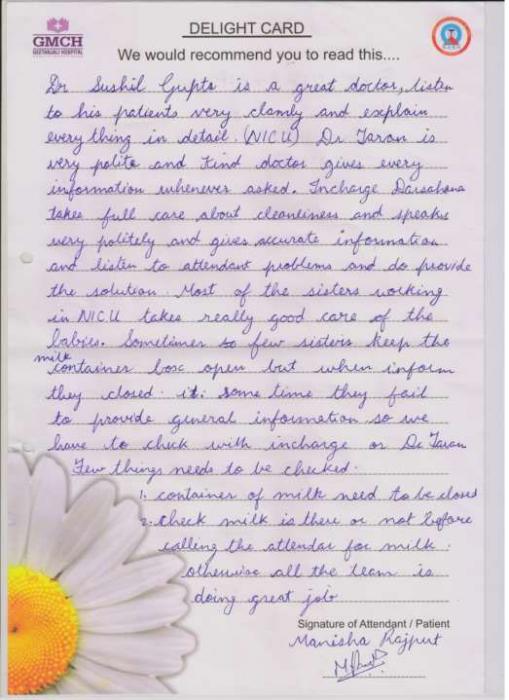 GMCH
GEETANJALI HOSPITAL
DELIGHT CARD
We would recommend you to read this....
Dr Sushil Gupta is a great doctor, listen
to his patients very clamly and explain
every thing in detail (NICU) Dr Taran is
very polite and kind doctor gives every
information whenever asked. Incharge Darsahana
takes full care about cleanliness and speaks
very politely and gives accurate information
and listen to attendant problems and do provide
the solution. Most of the sisters working
in NICU takes really good care of the
babies. Sometimes so few sisters keep the
milk
container box open but when inform
they closed it. some time they fail
to provide general information so we
have to check with incharge or Dr Taran
Few things needs to be checked.
1. container of milk need to be closed
2. check milk is there or not before
calling the attendar for milk.
otherwise all the team is
doing great job
Signature of Attendant / Patient
Manisha Rajput